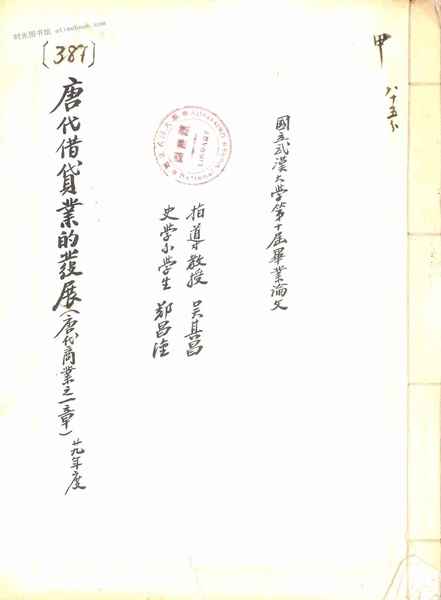 时光图书馆 atimebook.com
甲
八十五分
國立武漢大学第十届畢業論文
指導教授 吴其昌
史学小学生 鄭昌淦
〔387〕
唐代借貸業的發展（唐代商業之一章）廿九年度